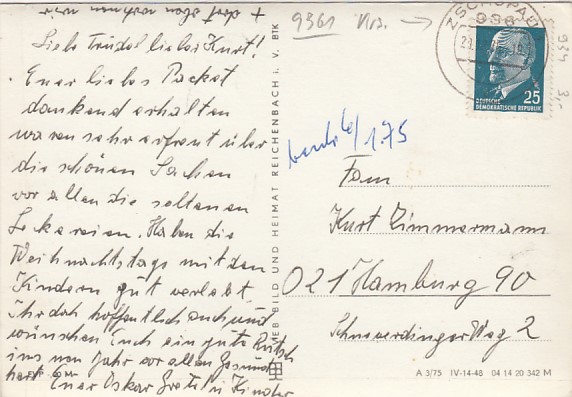 Liebe Trudel lieber Kurt!
Euer liebes Packet
dankend erhalten
waren sehr erfreut über
die schönen Sachen
vor allen die seltenen
Leckereien. Haben die
Weihnachtstage mit den
Kindern gut verlebt
Ihr doch hoffentlich auch und
wünschen Euch ein gute Rutsch
ins neu Jahr vor allen Gesund
heit Euer Oskar Gretel u Kinder
EVP
+ dort schon
VEB BILD UND HEIMAT REICHENBACH I. V. BTK
9361
ZSCHOPAU
936
934
3,-
25
DEUTSCHE
DEMOKRATISCHE REPUBLIK
1.75
Fam
Kurt Zimmermann
021 Hamburg 90
Schneverdinger Weg 2
A 3/75 IV-14-48 04 14 20 342 M